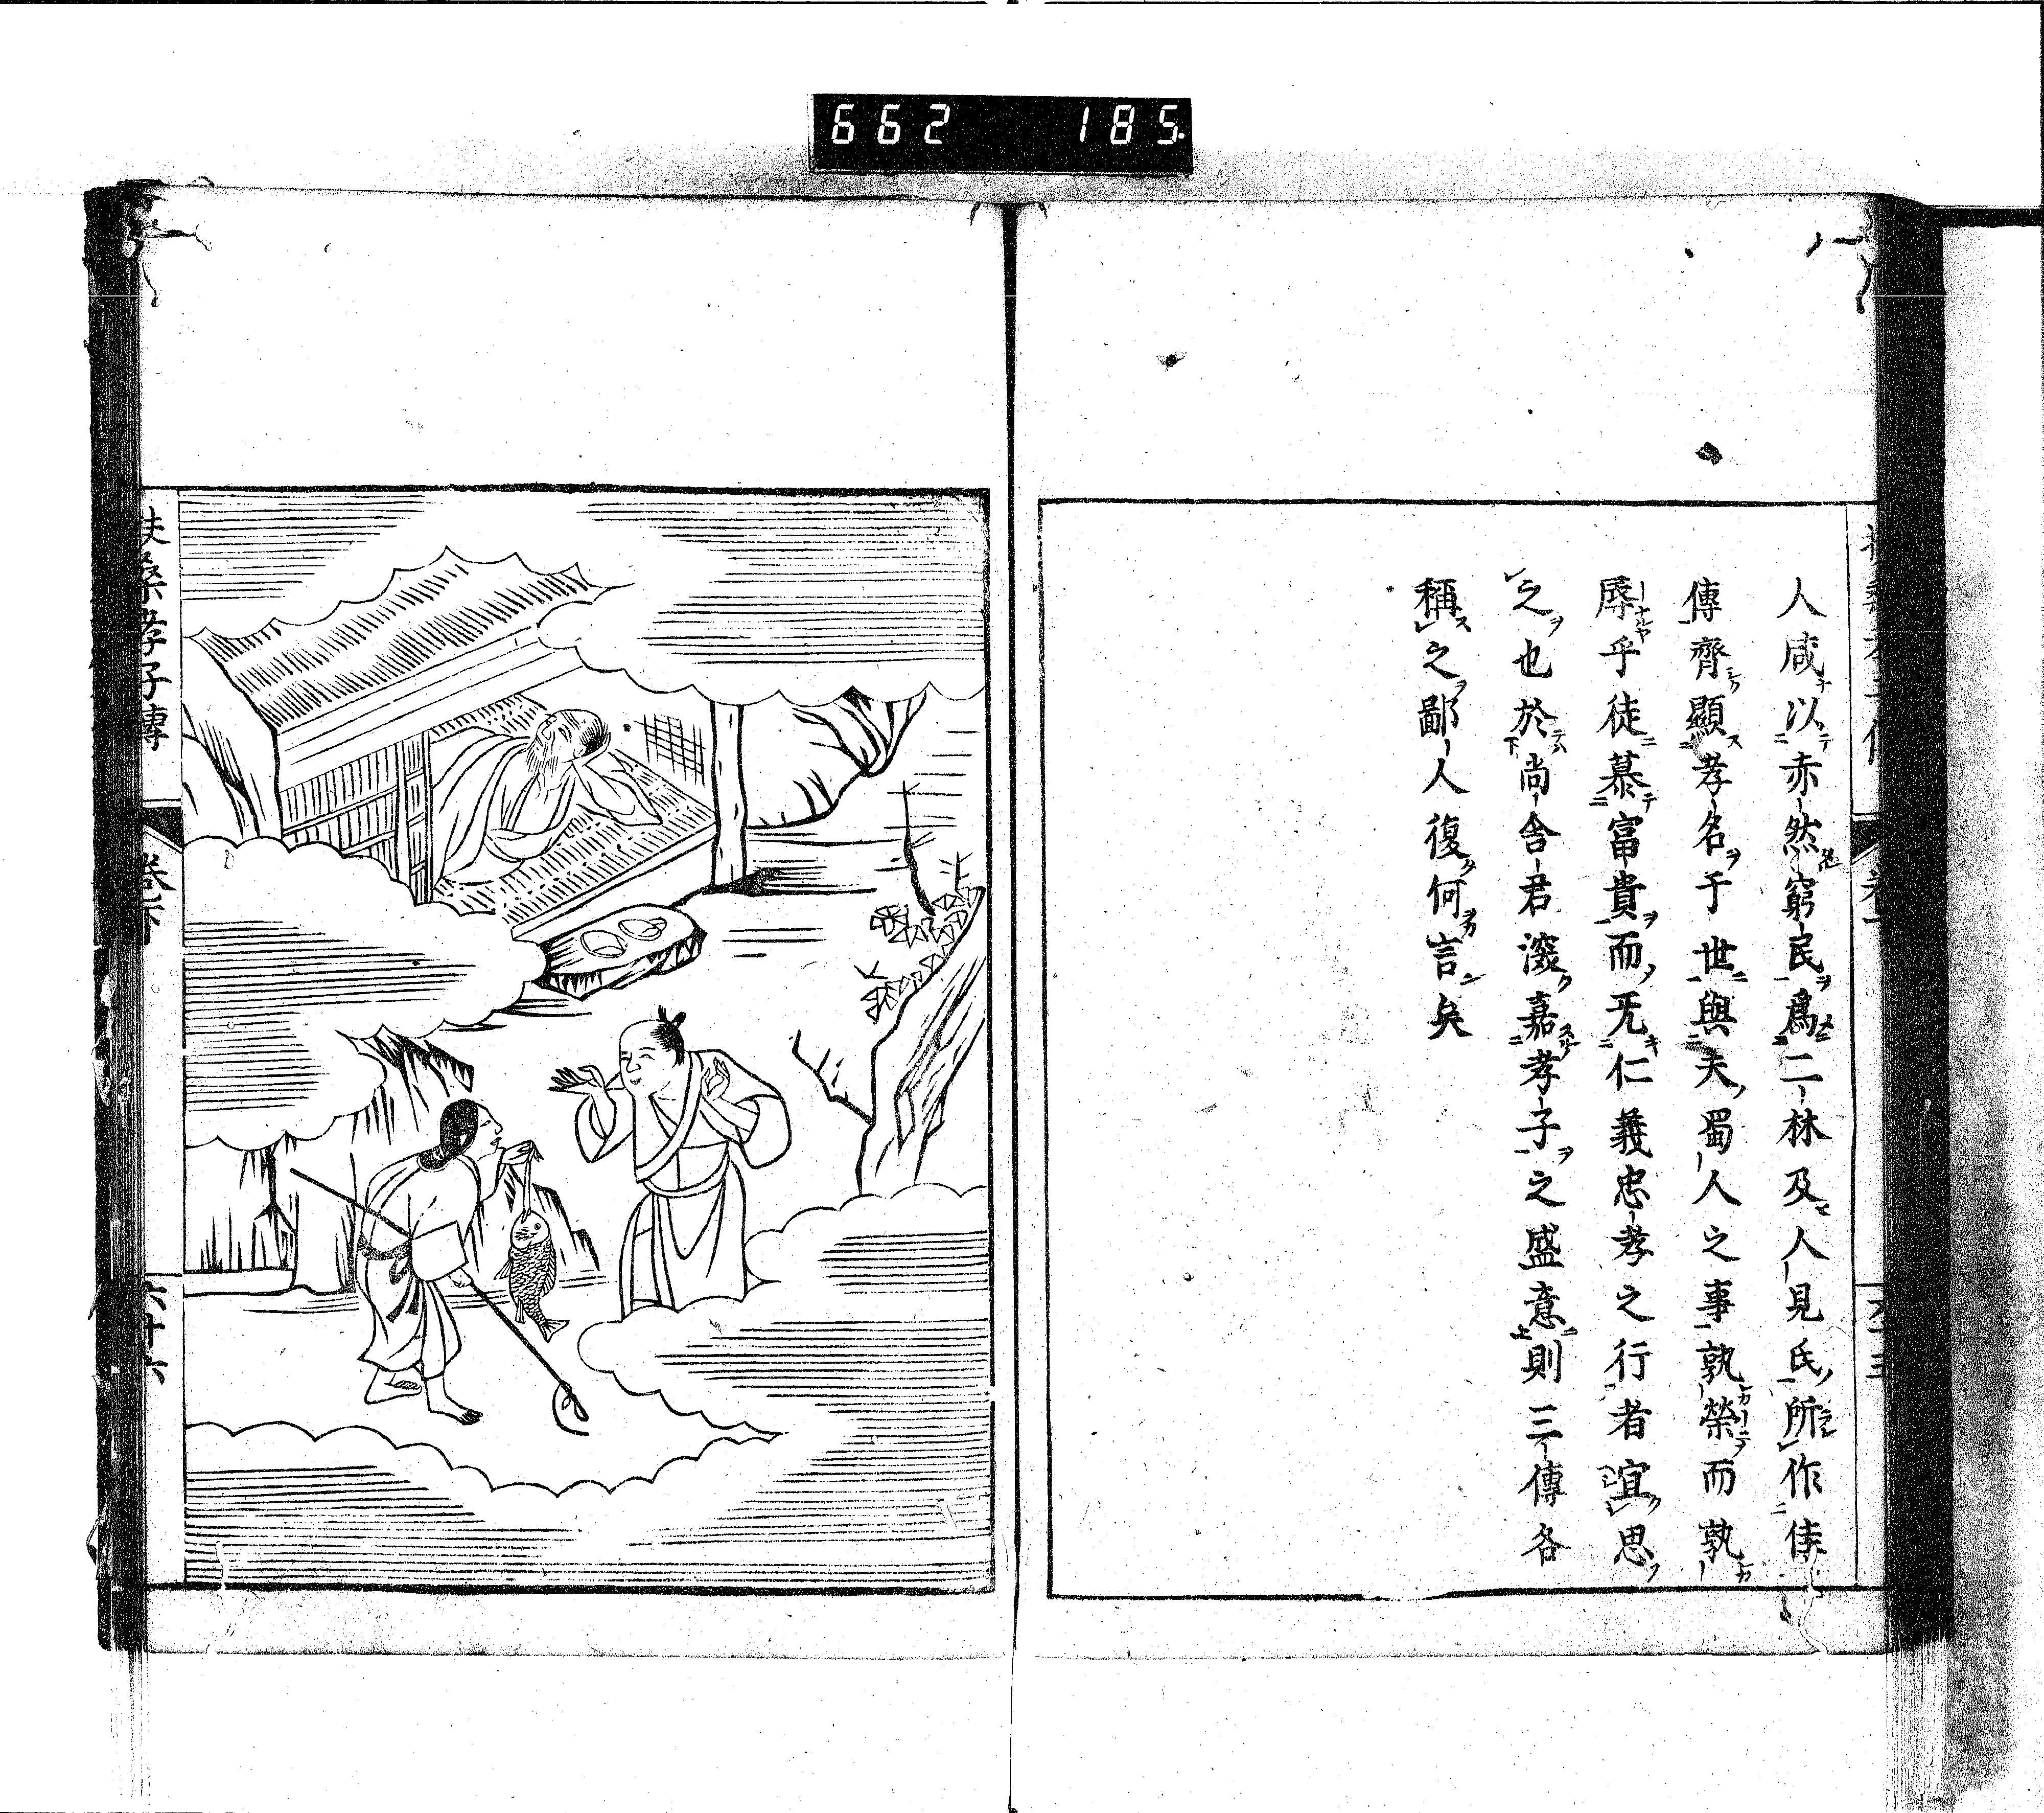 662 185
人咸以赤然窮民爲二林及人見氏所作佳
傳齊顯孝名于世與夫蜀人之事孰榮而孰
辱乎徒慕富貴而无仁義忠孝之行者宜思
之也於尚舎君深嘉孝子之盛意則三傳各
稱之鄙人復何言矣
扶桑孝子傳
卷下
六十六